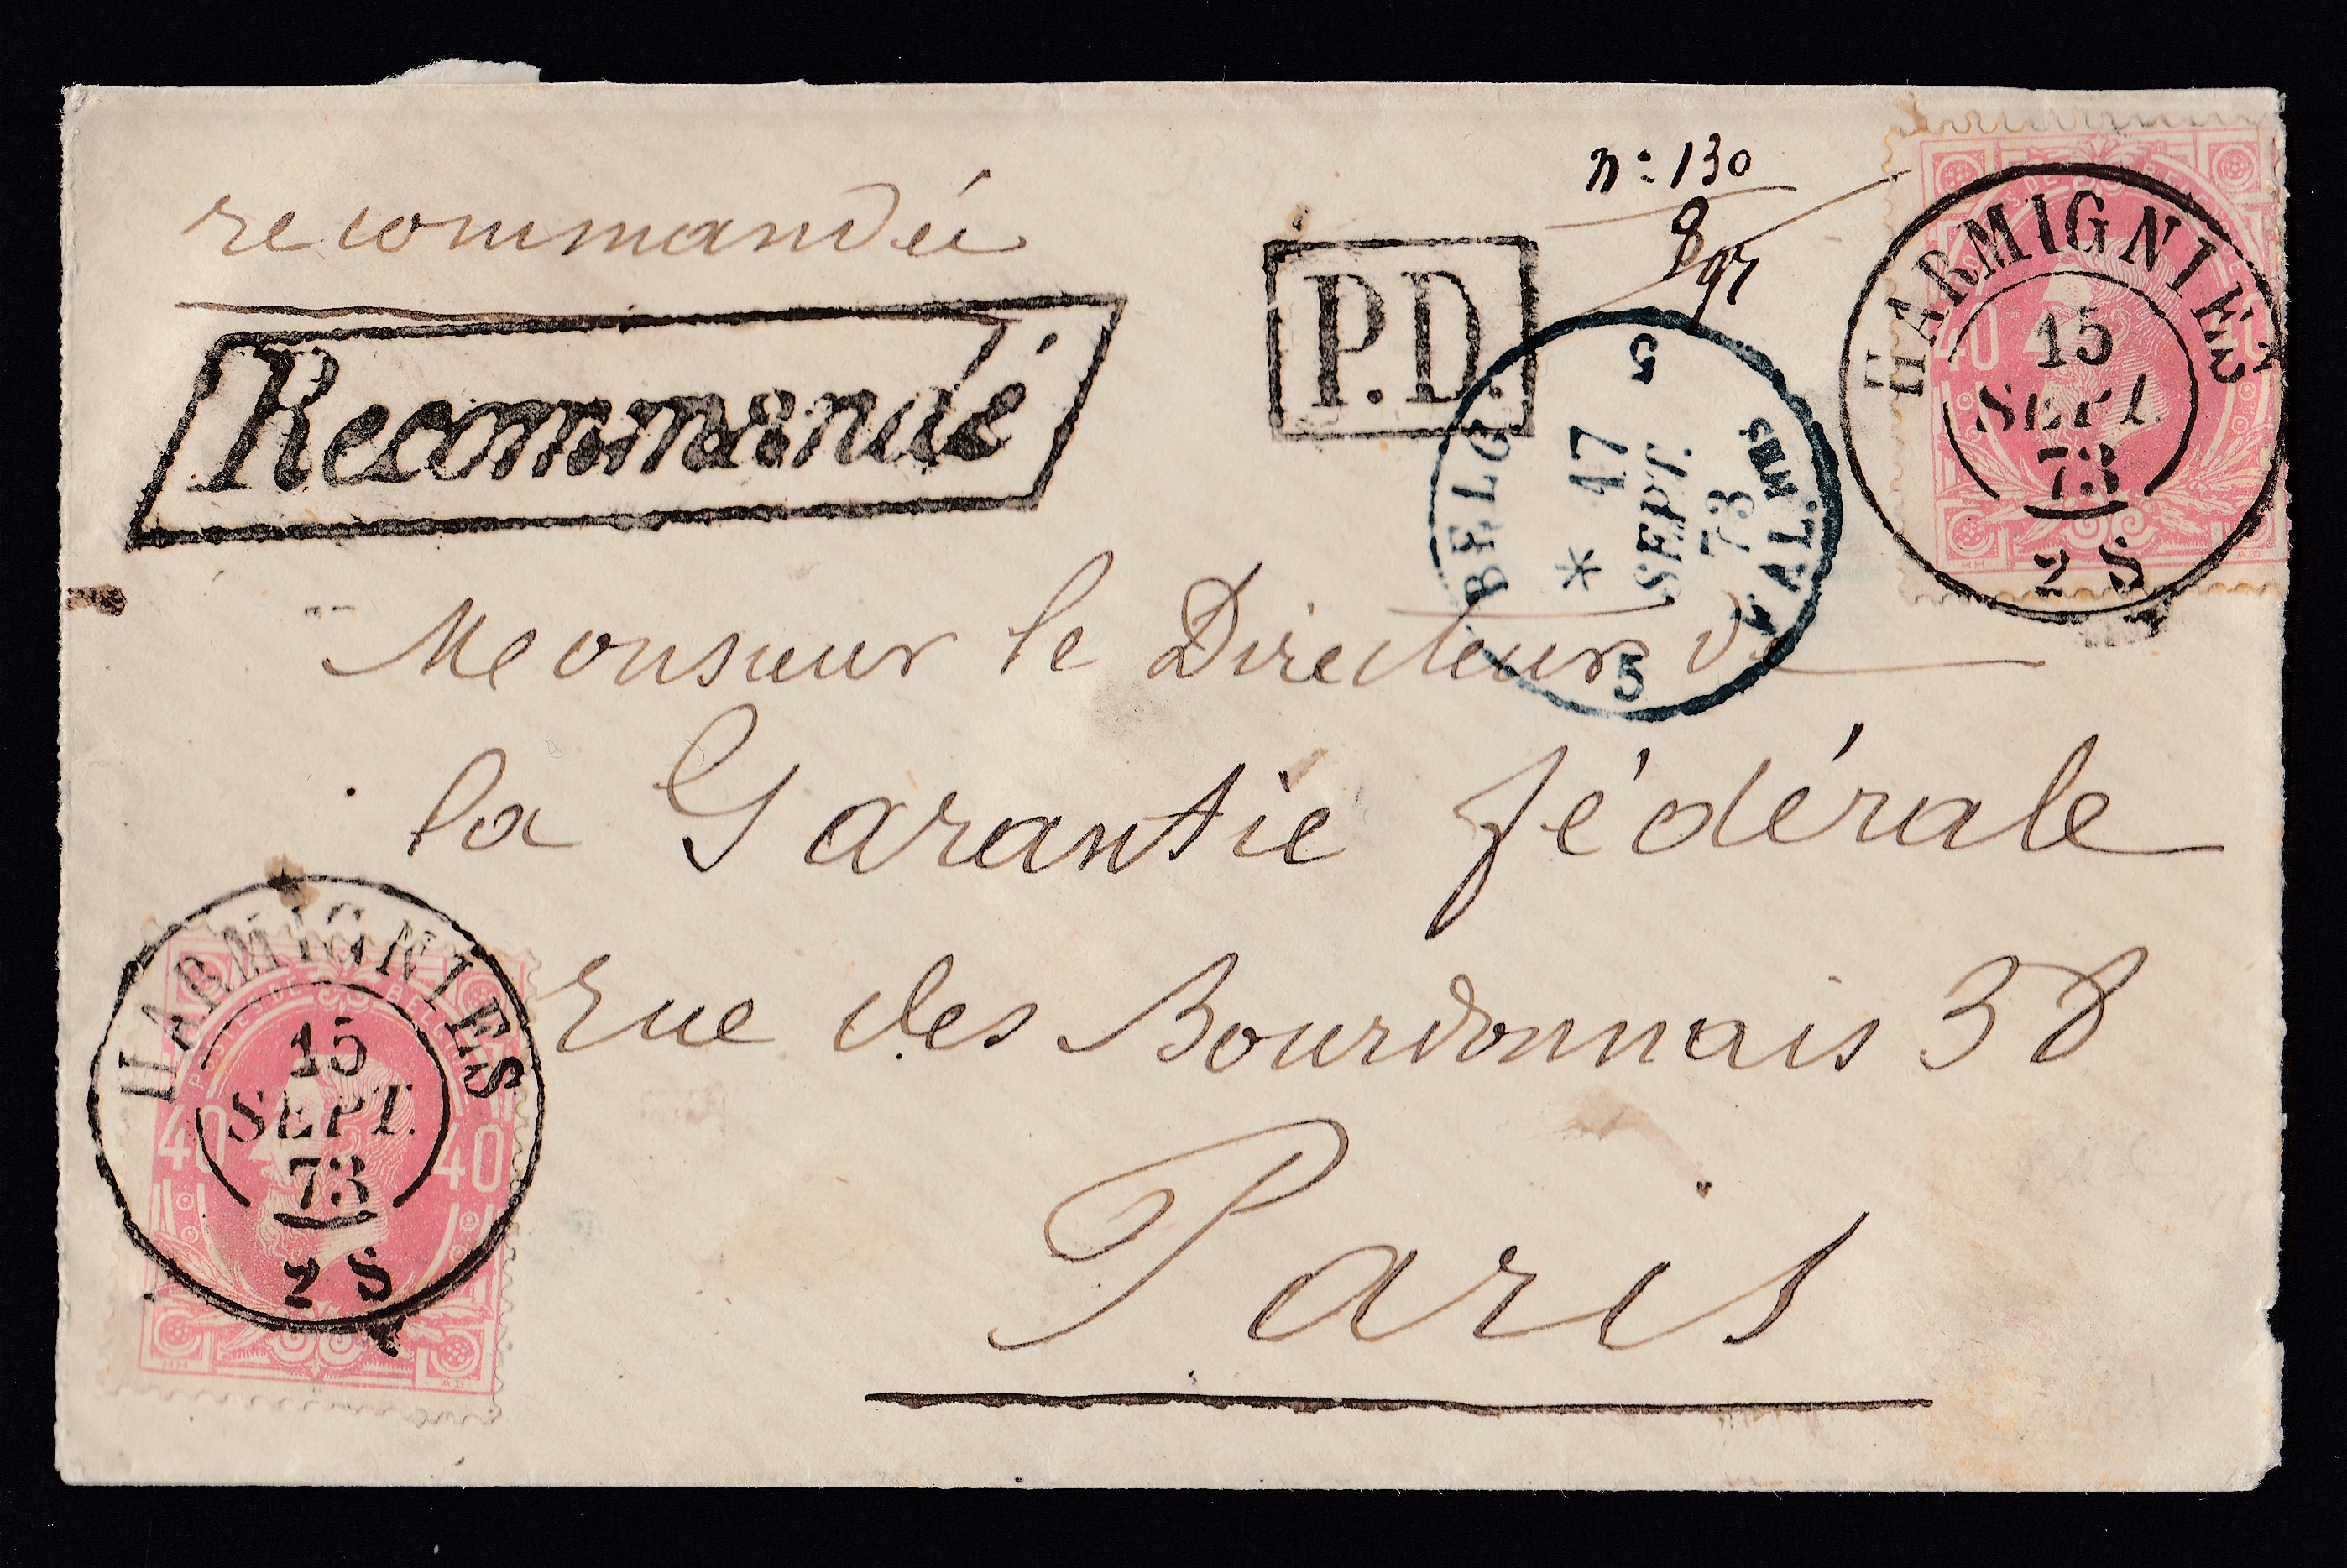 recommandée
Recommandé
P.D.
n: 130
8 gr
HARMIGNIES
15
SEPT.
73
2 S
BELG
5
* 17
SEPT.
73
VAL. MES
5
Monsieur le Directeur de
la Garantie fédérale
rue des Bourdonnais 38
Paris
HARMIGNIES
15
SEPT.
73
2 S
POSTES DE BELG
40 40